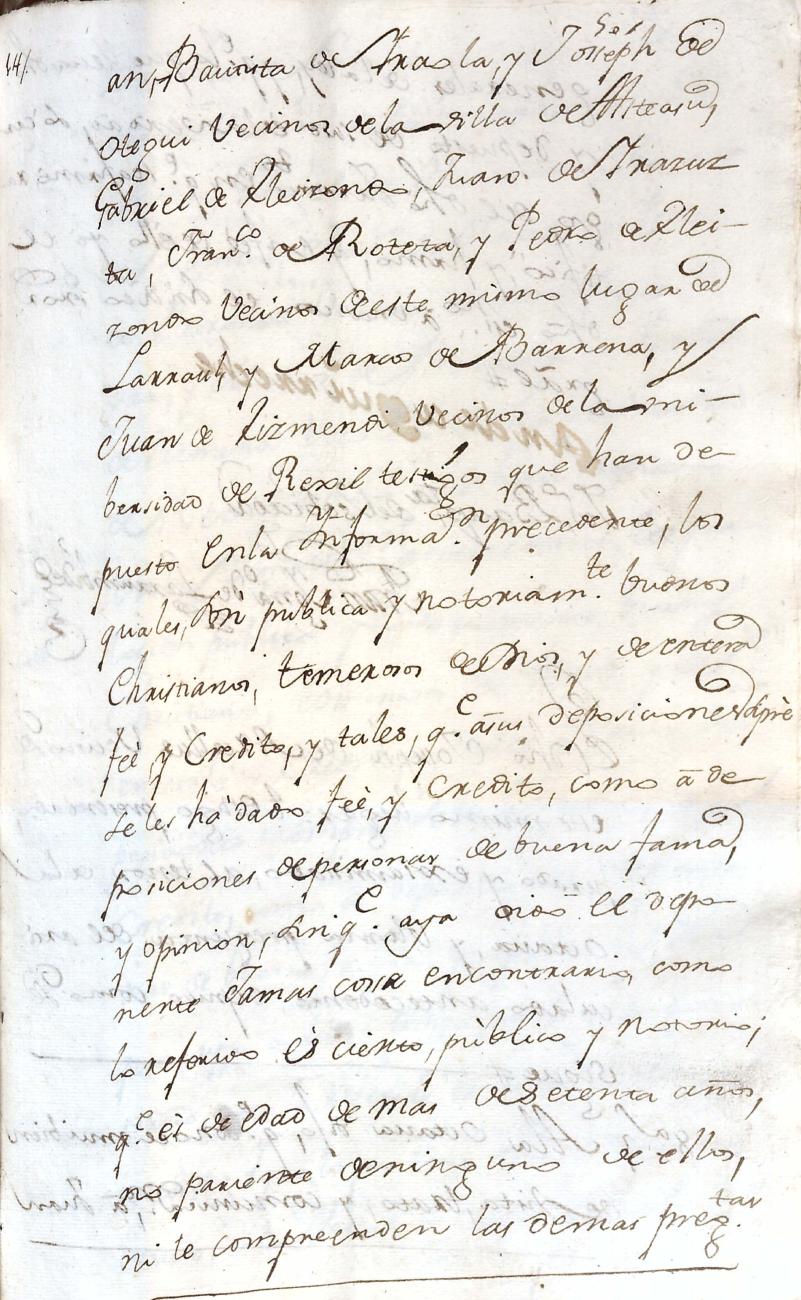 141.
an, Bautista de Yraola, y Joseph de
Otegui Vecinos dela villa de Asteasu,
Gabriel de Eleizondo, Juan de Yrazuz
ta, Fran.co de Roteta, y Pedro de Elei-
zondo Vecinos deeste mismo lugar de
Larraul, y Marcos de Barrena, y
Juan de Lizmendi Vecinos dela uni-
bersidad de Rexil testigos que han de
puesto enla Ynforma.on precedente, los
quales, son publica y notoriam.te buenos
Christianos, temerosos de Dios, y de entera
feè y Credito, y tales, q.e asus deposiciones siprè
se les há dado feè, y Credito, como à de
posiciones de personas de buena fama,
y opinion, sin q.e aya oido el depo
nente Jamas cossa encontrario, como
lo referido és cierto, pùblico y notorio;
q.e és de edad de mas de setenta años,
no pariente deninguno de ellos,
ni le compreenden las demas preg.tas